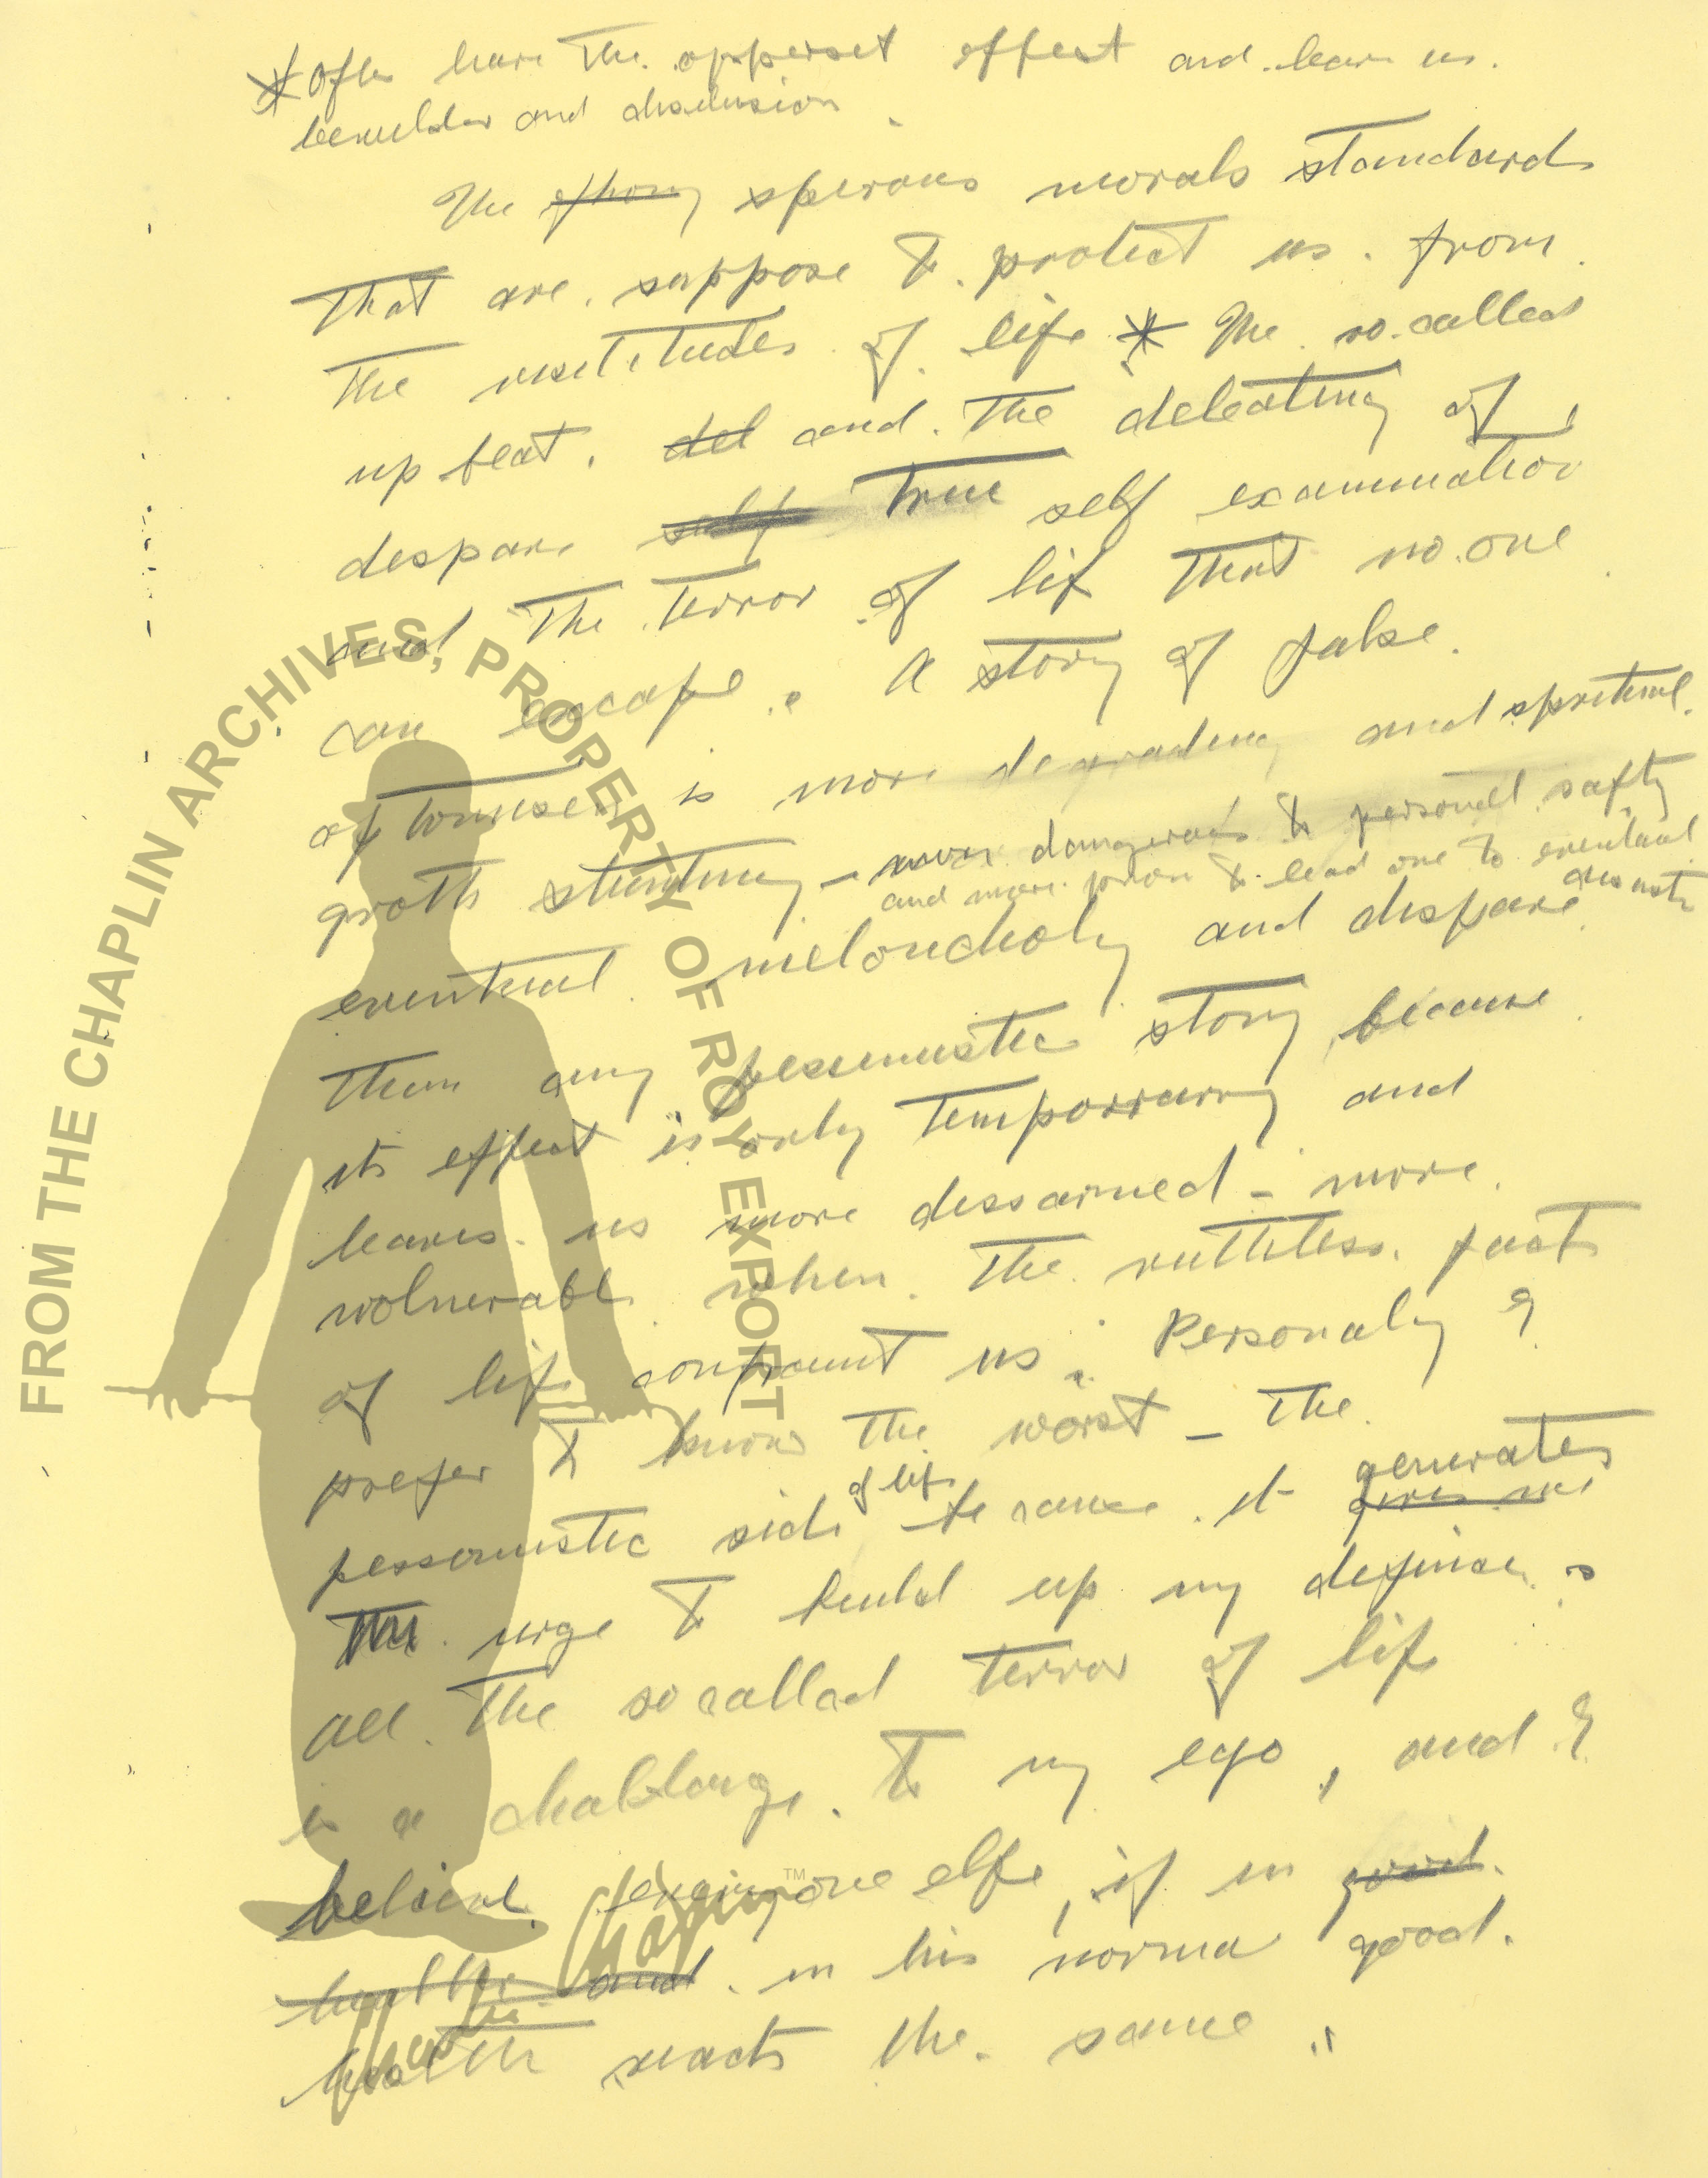 * Often have the opperset effect and leave us.
bewilder and disolusion
The phony spirous morals standards
that are suppose to protect us from
the visitudes of life * The so.called
up beat. del and the deleating of
despare self true self examination
and the terror of lif that no.one
can escape. A story of false
optomisem is more degrading and spiritual
groth stunting – more dangerous to personel safty
and more prone to lead one to eventual
disaster
eventual meloncholy and dispare
than any pessimistic story because
its effect is only temporrary and
leaves us more dissarmed – more
volnerable when the ruthless facts
of life confraunt us. Personaly I
prefer to know the worst – the
generates
pessamistic side of life because it gives me
the urge to build up my defense.
all the so called terror of life
is a challange to my ego, and I
believe everyone else, if in good
health and in his normal good
health reacts the same.
FROM THE CHAPLIN ARCHIVES, PROPERTY OF ROY EXPORT
Charlie Chaplin™